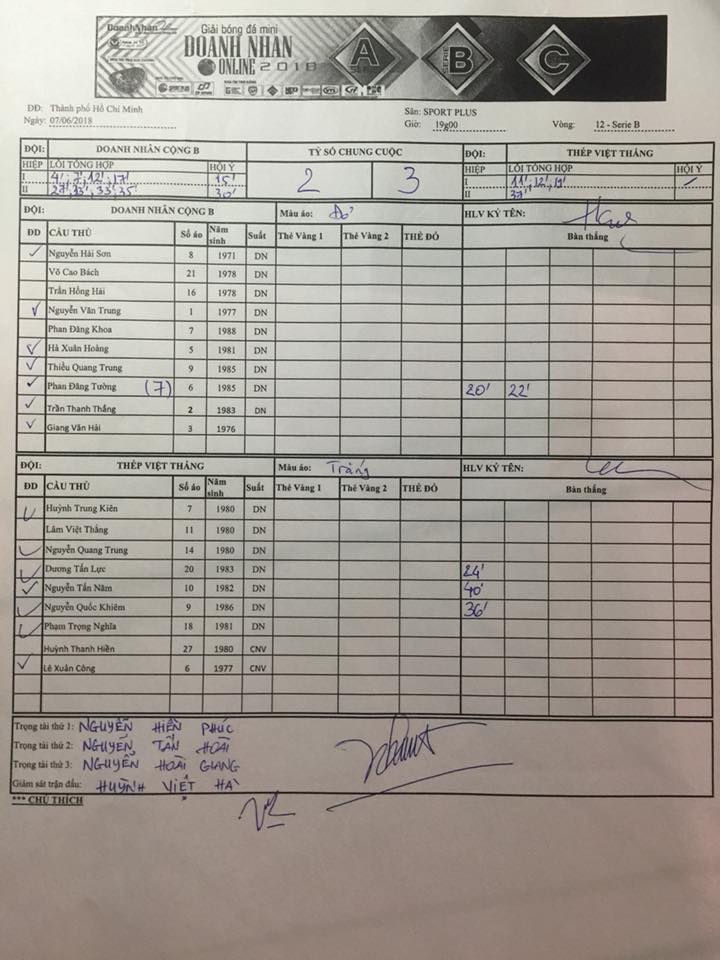 DoanhNhân
Giải bóng đá mini
DOANH NHAN
ONLINE 2018
A
SERIE B
C
ĐĐ: Thành phố Hồ Chí Minh
Sân: SPORT PLUS
Ngày: 07/06/2018
Giờ: 19g00
Vòng: 12 - Serie B
ĐỘI: DOANH NHÂN CỘNG B TỶ SỐ CHUNG CUỘC ĐỘI: THÉP VIỆT THẮNG
HIỆP LỖI TỔNG HỢP HỘI Ý 2 3 HIỆP LỖI TỔNG HỢP HỘI Ý
I 4', 7', 12', 17' 15' I 11', 12', 19' /
II 27', 33', 33', 35' 30' II 37'
ĐỘI: DOANH NHÂN CỘNG B Màu áo: Đỏ HLV KÝ TÊN:
ĐD CẦU THỦ Số áo Năm sinh Suất Thẻ Vàng 1 Thẻ Vàng 2 THẺ ĐỎ Bàn thắng
✓ Nguyễn Hải Sơn 8 1971 DN
Võ Cao Bách 21 1978 DN
Trần Hồng Hải 16 1978 DN
✓ Nguyễn Văn Trung 1 1977 DN
Phan Đăng Khoa 7 1988 DN
✓ Hà Xuân Hoàng 5 1981 DN
✓ Thiều Quang Trung 9 1985 DN
✓ Phan Đăng Tường (7) 6 1985 DN 20' 22'
✓ Trần Thanh Thắng 2 1983 DN
✓ Giang Văn Hải 3 1976
ĐỘI: THÉP VIỆT THẮNG Màu áo: Trắng HLV KÝ TÊN:
ĐD CẦU THỦ Số áo Năm sinh Suất Thẻ Vàng 1 Thẻ Vàng 2 THẺ ĐỎ Bàn thắng
✓ Huỳnh Trung Kiên 7 1980 DN
Lâm Việt Thắng 11 1980 DN
✓ Nguyễn Quang Trung 14 1980 DN
✓ Dương Tấn Lực 20 1983 DN 24'
✓ Nguyễn Tấn Năm 10 1982 DN 40'
✓ Nguyễn Quốc Khiêm 9 1986 DN 36'
✓ Phạm Trọng Nghĩa 18 1981 DN
Huỳnh Thanh Hiền 27 1980 CNV
✓ Lê Xuân Công 6 1977 CNV
Trọng tài thứ 1: NGUYỄN HIỀN PHÚC
Trọng tài thứ 2: NGUYỄN TẤN HOÀI
Trọng tài thứ 3: NGUYỄN HOÀI GIANG
Giám sát trận đấu: HUỲNH VIỆT HÀ
*** CHÚ THÍCH